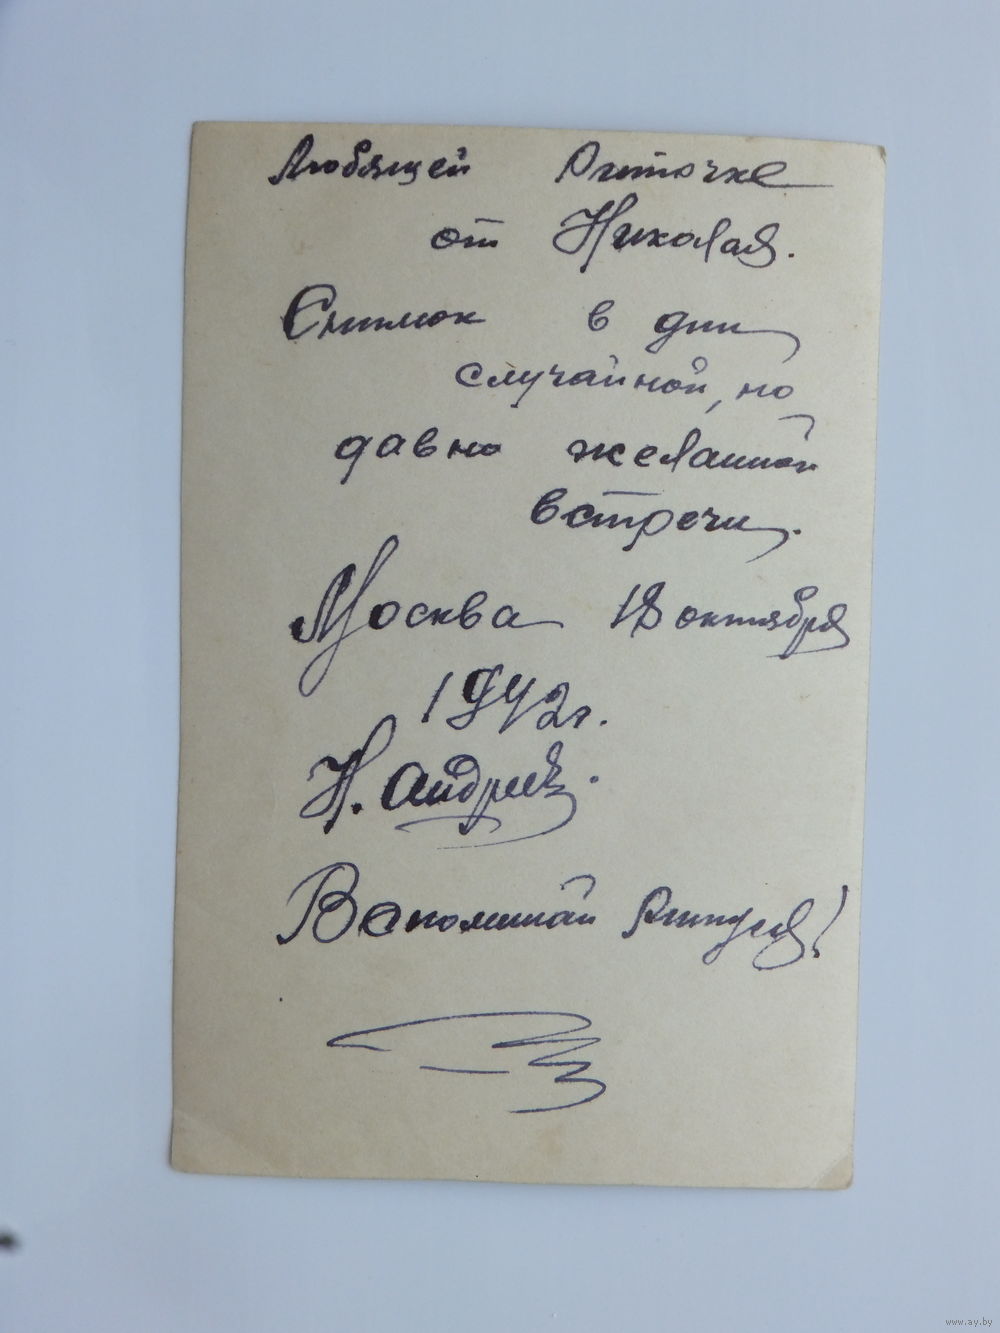 Любящей Риточке
от Николая.
Снимок в дни
случайной, но
давно желанной
встречи.
Москва 18 октября
1942г.
Н. Андреев.
Вспоминай Ритуся!
www.ay.by